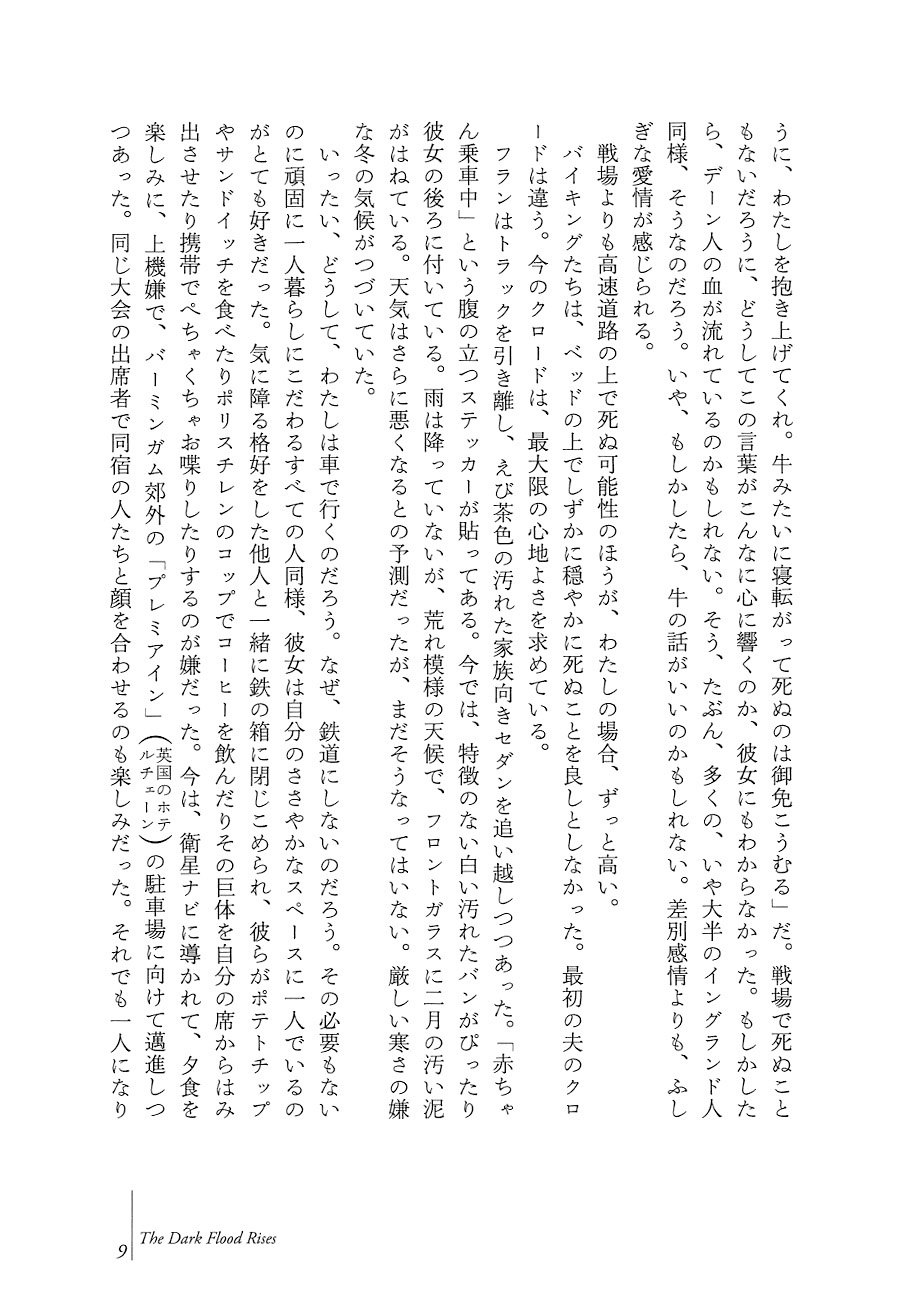 うに、わたしを抱き上げてくれ。牛みたいに寝転がって死ぬのは御免こうむる」だ。戦場で死ぬこと
もないだろうに、どうしてこの言葉がこんなに心に響くのか、彼女にもわからなかった。もしかした
ら、デーン人の血が流れているのかもしれない。そう、たぶん、多くの、いや大半のイングランド人
同様、そうなのだろう。いや、もしかしたら、牛の話がいいのかもしれない。差別感情よりも、ふし
ぎな愛情が感じられる。
戦場よりも高速道路の上で死ぬ可能性のほうが、わたしの場合、ずっと高い。
バイキングたちは、ベッドの上でしずかに穏やかに死ぬことを良しとしなかった。最初の夫のクロ
ードは違う。今のクロードは、最大限の心地よさを求めている。
フランはトラックを引き離し、えび茶色の汚れた家族向きセダンを追い越しつつあった。「赤ちゃ
ん乗車中」という腹の立つステッカーが貼ってある。今では、特徴のない白い汚れたバンがぴったり
彼女の後ろに付いている。雨は降っていないが、荒れ模様の天候で、フロントガラスに二月の汚い泥
がはねている。天気はさらに悪くなるとの予測だったが、まだそうなってはいない。厳しい寒さの嫌
な冬の気候がつづいていた。
いったい、どうして、わたしは車で行くのだろう。なぜ、鉄道にしないのだろう。その必要もない
のに頑固に一人暮らしにこだわるすべての人同様、彼女は自分のささやかなスペースに一人でいるの
がとても好きだった。気に障る格好をした他人と一緒に鉄の箱に閉じこめられ、彼らがポテトチップ
やサンドイッチを食べたりポリスチレンのコップでコーヒーを飲んだりその巨体を自分の席からはみ
出させたり携帯でぺちゃくちゃお喋りしたりするのが嫌だった。今は、衛星ナビに導かれて、夕食を
楽しみに、上機嫌で、バーミンガム郊外の「プレミアイン」(英国のホテルチェーン)の駐車場に向けて邁進しつ
つあった。同じ大会の出席者で同宿の人たちと顔を合わせるのも楽しみだった。それでも一人になり
9 The Dark Flood Rises